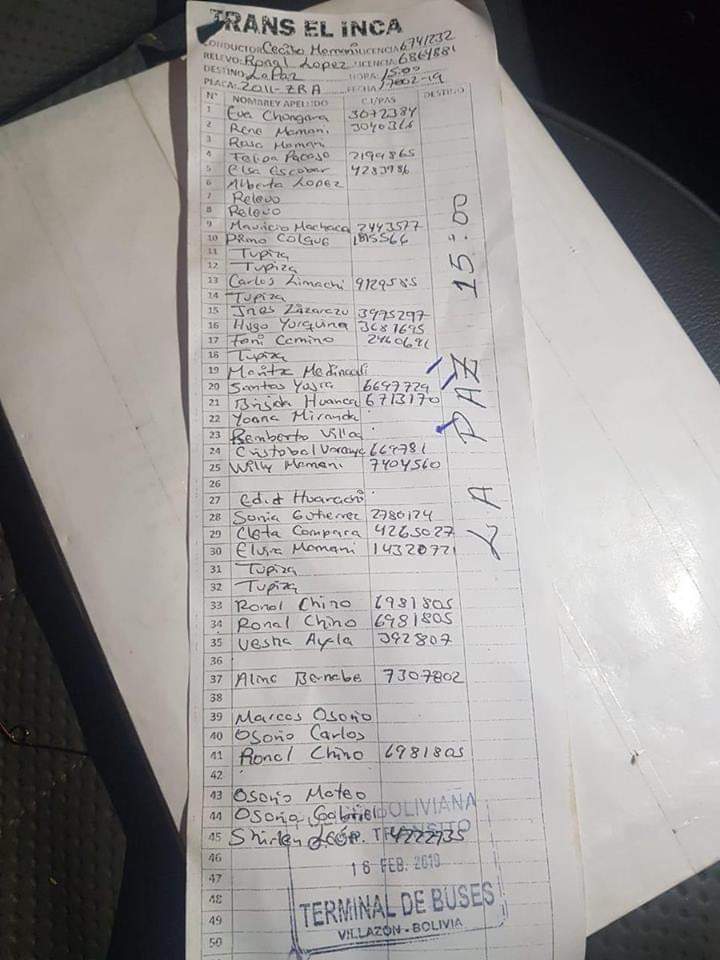 TRANS EL INCA
CONDUCTOR Cecilio Mamani LICENCIA 6741232
RELEVO: Ronal Lopez LICENCIA 6864881
DESTINO La Paz HORA 15:00
PLACA: 2011-ZRA FECHA 17-02-19
N° NOMBRE Y APELLIDO C.I/PAS DESTINO
1 Eva Chongara 3072384
2 Rene Mamani 3040366
3 Rosa Mamani
4 Felipa Pacaso 2199865
5 Elsa Escobar 4283986
6 Alberto Lopez
7 Relevo
8 Relevo
9 Mauricio Machaca 2443577
10 Primo Colque
11 Tupiza
12 Tupiza
13 Carlos Limachi 9129585
14 Tupiza
15 Ines 3975297
16 Hugo Yurquina 3681695
17 Toni Camino 2460691
18 Tupiza
19 Maritza
20 Santos Yujra 6697729
21 Brigida Huanca 6713170
22 Yoana Miranda
23 Remberto Villa
24 Cristobal 669781
25 Willy Mamani 7404560
26
27 Edid Huarachi
28 Sonia Gutierrez 2780124
29 Cleta Compara 4265027
30 Elvira Mamani 14320771
31 Tupiza
32 Tupiza
33 Ronal Chino 6981805
34 Ronal Chino 6981805
35 Vesna Ayala 392807
36
37 Aline Bernabe 7307802
38
39 Marcos Osorio
40 Osorio Carlos
41 Ronal Chino 6981805
42
43 Osorio Mateo
44 Osorio Gabriel
45 Shirley 4722735
46
47
48
49
50
LA PAZ 15:00
BOLIVIANA
TRANSITO
16 FEB. 2019
TERMINAL DE BUSES
VILLAZON - BOLIVIA